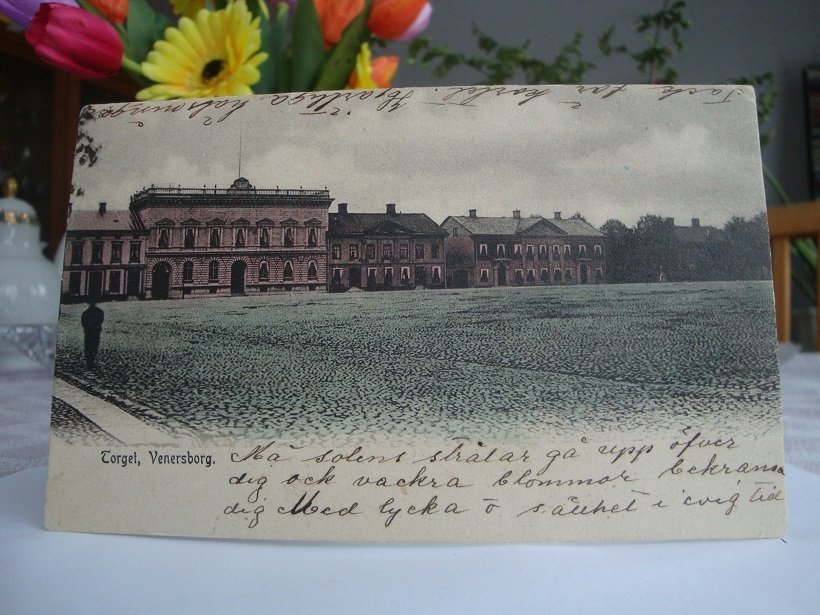 Tack för kortet. Hjärtliga hälsningar
Torget, Venersborg.
Må solens strålar gå upp öfver
dig ock vackra blommor bekransa
dig Med lycka o sällhet i evig tid